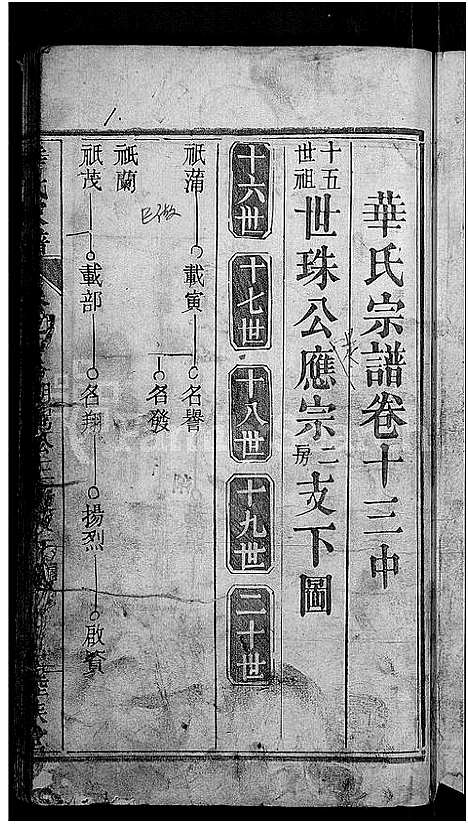 華氏宗譜卷十三中
十五世祖世珠公應宗二房支下圖
十六世
十七世
十八世
十九世
二十世
祇蒲 載寅 名譽
名發
祇蘭
祇茂 載部 名翔 揚烈 啟賓